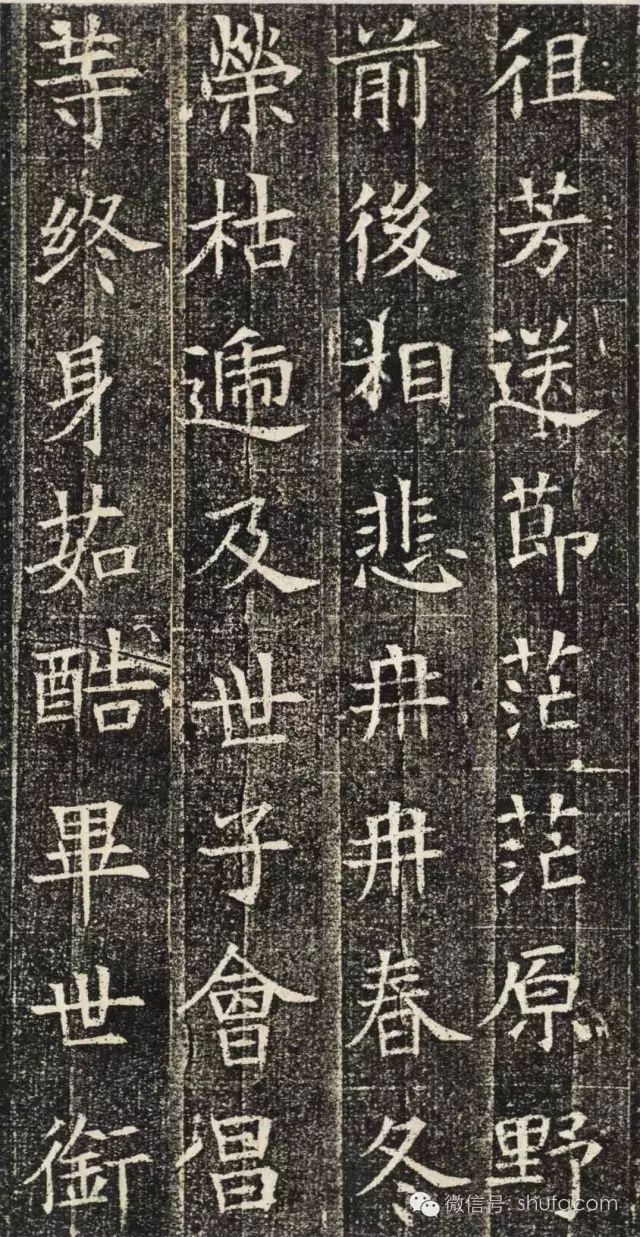 徂芳送節茫茫原野
前後相悲冉冉春冬
榮枯遞及世子會倡
等終身茹酷畢世銜
微信号: shufa.com